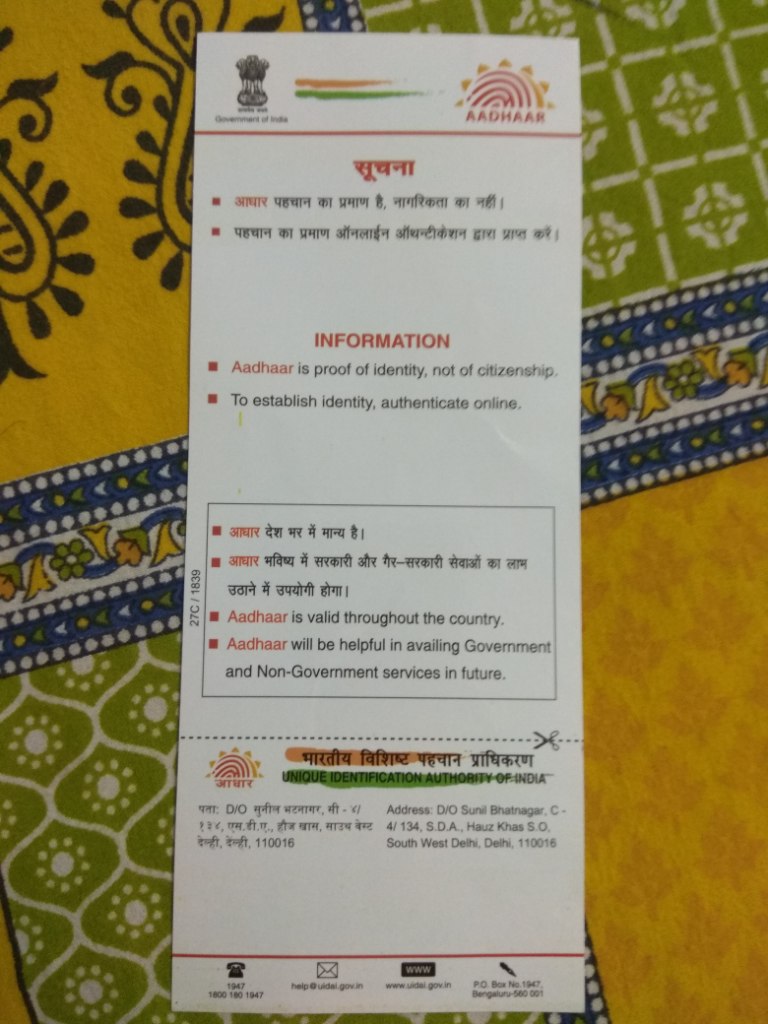 Government of India
AADHAAR
सूचना
आधार पहचान का प्रमाण है, नागरिकता का नहीं।
पहचान का प्रमाण ऑनलाईन ऑथन्टीकेशन द्वारा प्राप्त करें।
INFORMATION
Aadhaar is proof of identity, not of citizenship.
To establish identity, authenticate online.
आधार देश भर में मान्य है।
आधार भविष्य में सरकारी और गैर-सरकारी सेवाओं का लाभ
उठाने में उपयोगी होगा।
Aadhaar is valid throughout the country.
Aadhaar will be helpful in availing Government
and Non-Government services in future.
27C / 1839
आधार
भारतीय विशिष्ट पहचान प्राधिकरण
UNIQUE IDENTIFICATION AUTHORITY OF INDIA
पता: D/O सुनील भटनागर, सी - ४/
१३४, एस.डी.ए., हौज खास, साउथ वेस्ट
देल्ही, देल्ही, 110016
Address: D/O Sunil Bhatnagar, C -
4/ 134, S.D.A., Hauz Khas S.O,
South West Delhi, Delhi, 110016
1947
1800 180 1947
help@uidai.gov.in
www
www.uidai.gov.in
P.O. Box No.1947,
Bengaluru-560 001